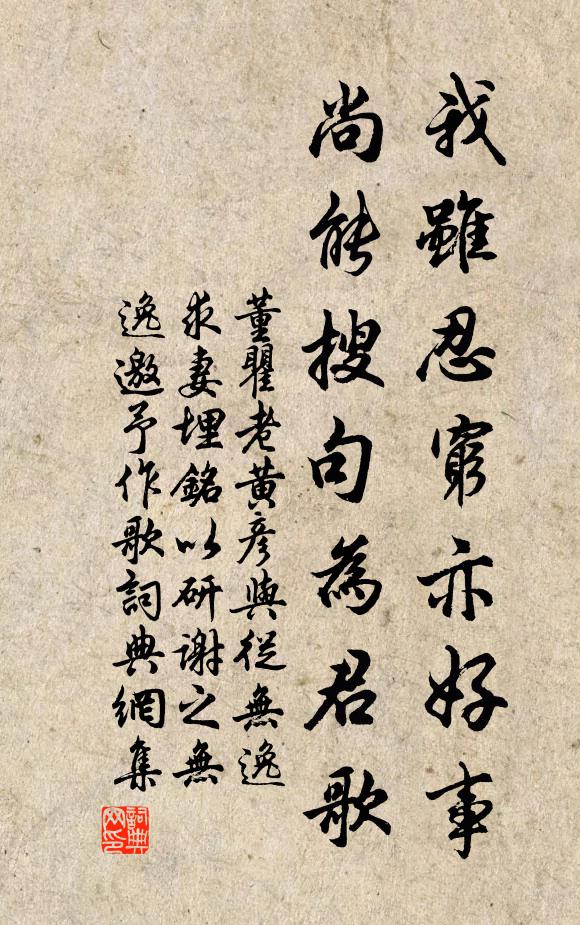 我雖忍窮亦好事
尚能搜句為君歌
董瞿老黃彥輿從無逸
求妻埋銘以研謝之無
逸邀予作歌詞典網集
詞典
网印